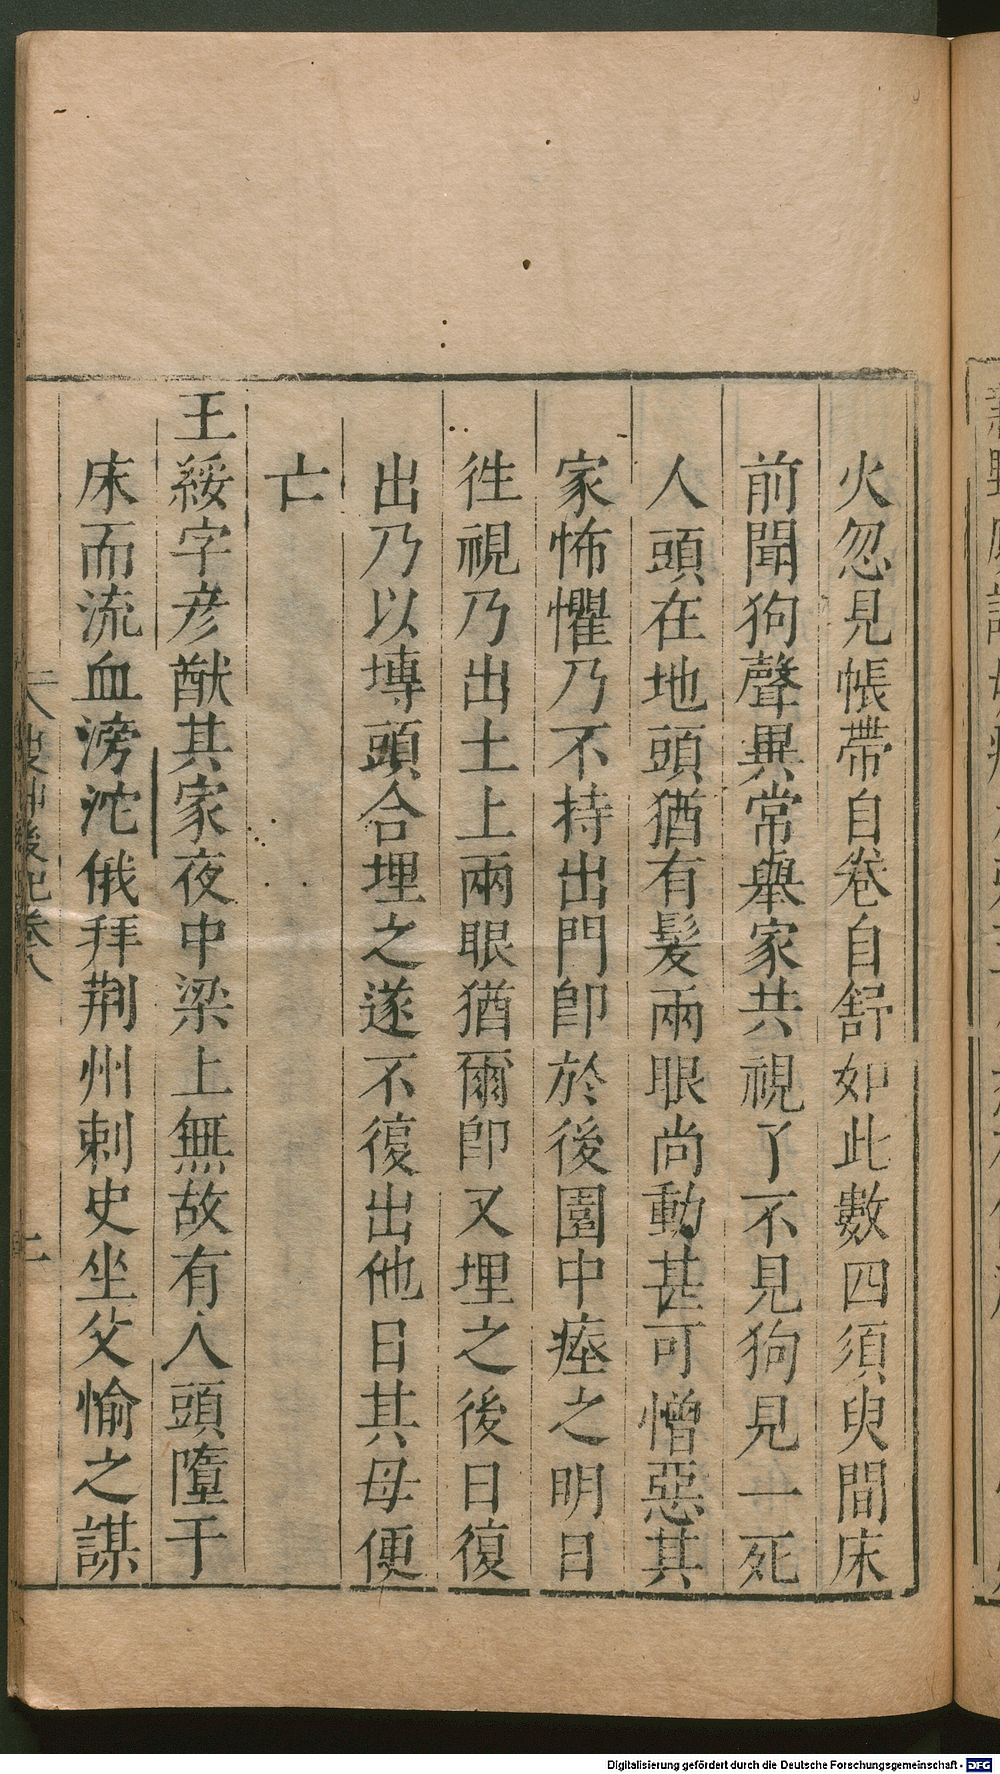 火忽見帳帶自卷自舒如此數四須臾間床
前聞狗聲異常舉家共視了不見狗見一死
人頭在地頭猶有髮兩眼尚動甚可憎惡其
家怖懼乃不持出門卽於後園中瘞之明日
徃視乃出土上兩眼猶爾卽又埋之後日復
出乃以塼頭合埋之遂不復出他日其母便
亡
王綏字彦猷其家夜中梁上無故有人頭墮于
床而流血滂沱俄拜荆州刺史坐父愉之謀
搜神後記卷八
二
Digitalisierung gefördert durch die Deutsche Forschungsgemeinschaft - DFG